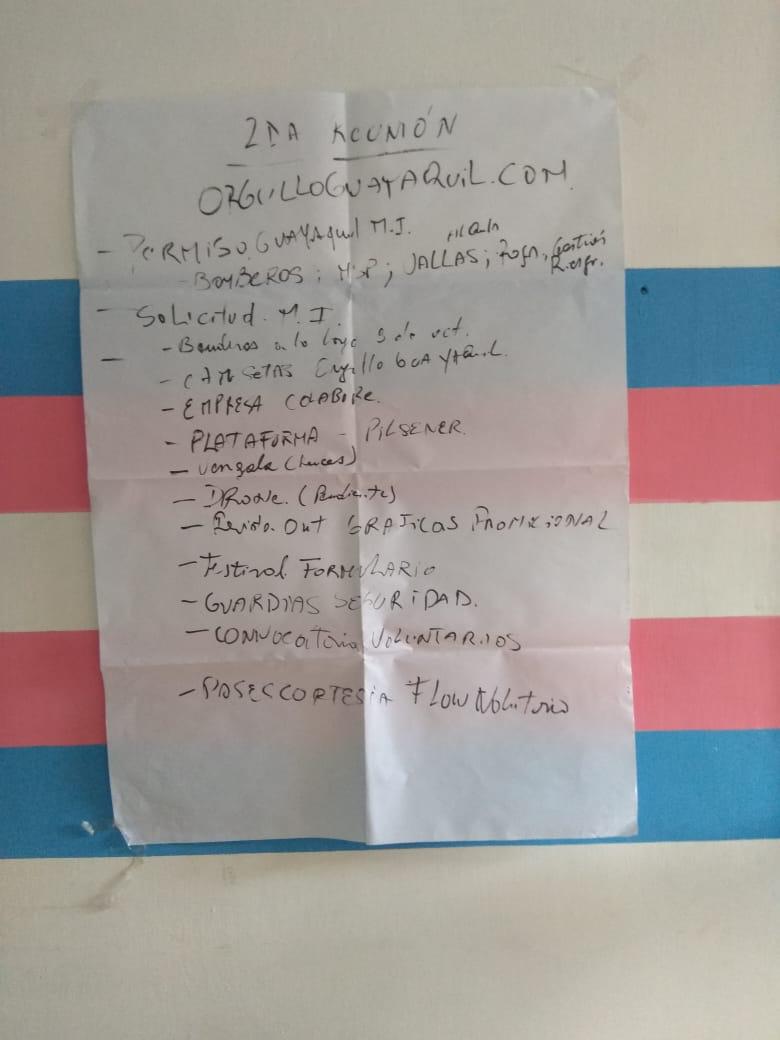 2DA REUNIÓN
ORGULLOGUAYAQUIL.COM.
- PERMISO. GUAYAQUIL M.I.
- BOMBEROS; MSP; VALLAS; Gestión
- Solicitud. M.I.
- Banderas a lo largo 9 de oct.
- CAMISETAS Orgullo GUAYAQUIL.
- EMPRESA COLABORE.
- PLATAFORMA - PILSENER.
- vengala (luces)
- DRONE. (Pendiente)
- Out GRAFICAS PROMOCIONAL
- Festival FORMULARIO
- GUARDIAS SEGURIDAD.
- CONVOCATORIA VOLUNTARIOS
- PASES CORTESIA FLOW